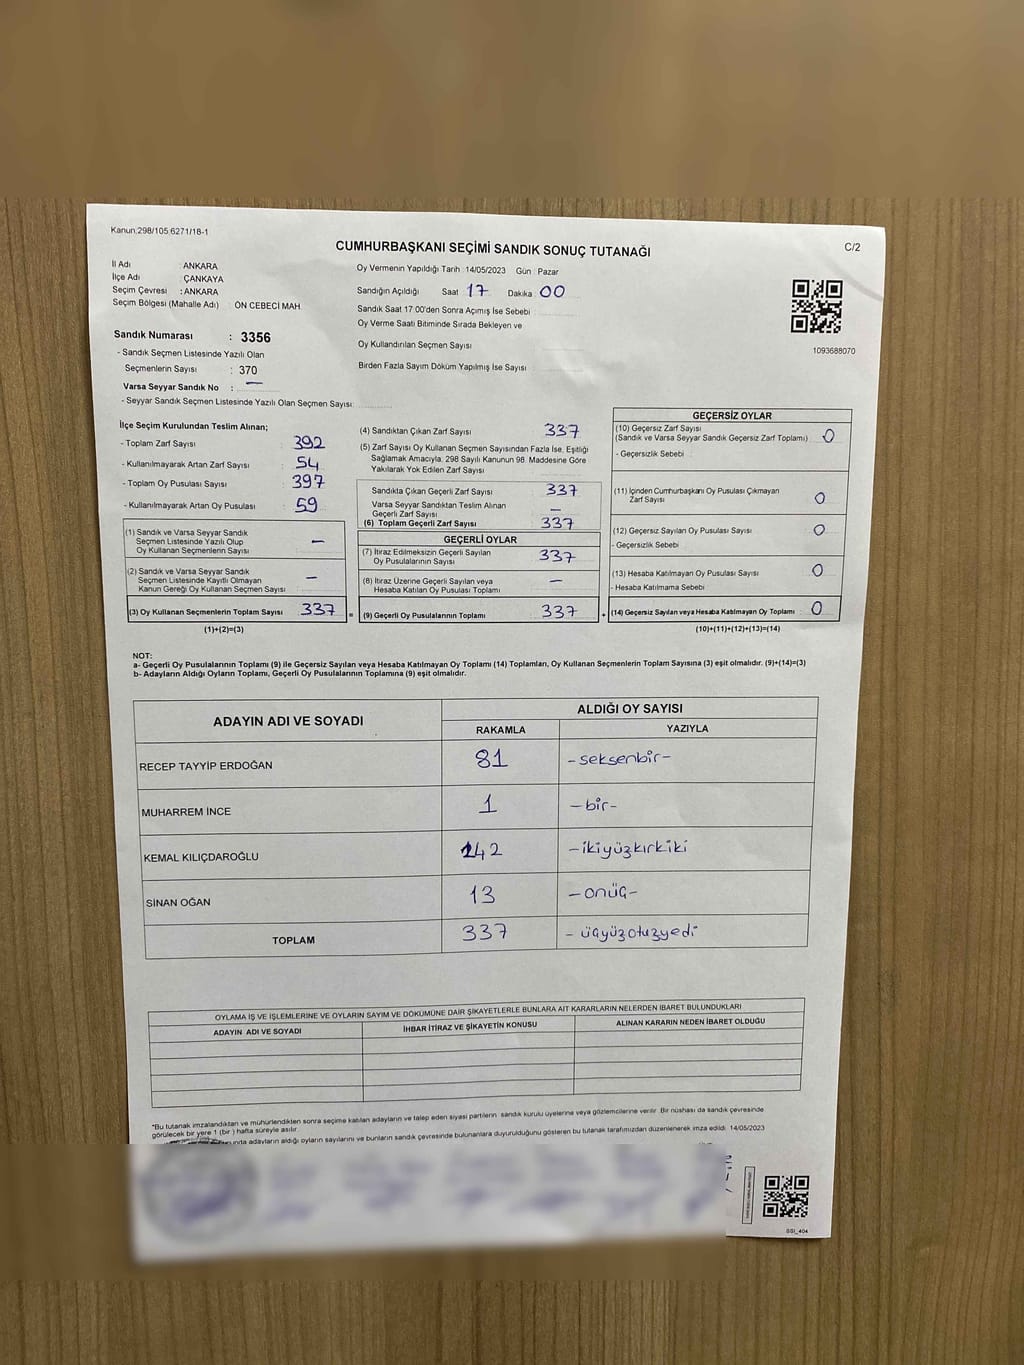 Kanun:298/105 6271/18-1
CUMHURBAŞKANI SEÇİMİ SANDIK SONUÇ TUTANAĞI
C/2
İl Adı : ANKARA
İlçe Adı : ÇANKAYA
Seçim Çevresi : ANKARA
Seçim Bölgesi (Mahalle Adı) : ÖN CEBECİ MAH.
Sandık Numarası : 3356
- Sandık Seçmen Listesinde Yazılı Olan
Seçmenlerin Sayısı : 370
Varsa Seyyar Sandık No : —
- Seyyar Sandık Seçmen Listesinde Yazılı Olan Seçmen Sayısı:
Oy Vermenin Yapıldığı Tarih :14/05/2023 Gün : Pazar
Sandığın Açıldığı Saat 17 Dakika 00
Sandık Saat 17:00'den Sonra Açımış İse Sebebi
Oy Verme Saati Bitiminde Sırada Bekleyen ve
Oy Kullandırılan Seçmen Sayısı
Birden Fazla Sayım Döküm Yapılmış İse Sayısı
1093688070
İlçe Seçim Kurulundan Teslim Alınan;
- Toplam Zarf Sayısı : 392
- Kullanılmayarak Artan Zarf Sayısı : 54
- Toplam Oy Pusulası Sayısı : 397
- Kullanılmayarak Artan Oy Pusulası : 59
(1) Sandık ve Varsa Seyyar Sandık
Seçmen Listesinde Yazılı Olup
Oy Kullanan Seçmenlerin Sayısı : —
(2) Sandık ve Varsa Seyyar Sandık
Seçmen Listesinde Kayıtlı Olmayan
Kanun Gereği Oy Kullanan Seçmen Sayısı : —
(3) Oy Kullanan Seçmenlerin Toplam Sayısı : 337 =
(1)+(2)=(3)
(4) Sandıktan Çıkan Zarf Sayısı : 337
(5) Zarf Sayısı Oy Kullanan Seçmen Sayısından Fazla İse, Eşitliği
Sağlamak Amacıyla, 298 Sayılı Kanunun 98. Maddesine Göre
Yakılarak Yok Edilen Zarf Sayısı
Sandıkta Çıkan Geçerli Zarf Sayısı : 337
Varsa Seyyar Sandıktan Teslim Alınan
Geçerli Zarf Sayısı : —
(6) Toplam Geçerli Zarf Sayısı : 337
GEÇERLİ OYLAR
(7) İtiraz Edilmeksizin Geçerli Sayılan
Oy Pusulalarının Sayısı : 337
(8) İtiraz Üzerine Geçerli Sayılan veya
Hesaba Katılan Oy Pusulaları Toplamı : —
(9) Geçerli Oy Pusulalarının Toplamı : 337 +
GEÇERSİZ OYLAR
(10) Geçersiz Zarf Sayısı
(Sandık ve Varsa Seyyar Sandık Geçersiz Zarf Toplamı) : 0
- Geçersizlik Sebebi
(11) İçinden Cumhurbaşkanı Oy Pusulası Çıkmayan
Zarf Sayısı : 0
(12) Geçersiz Sayılan Oy Pusulası Sayısı : 0
- Geçersizlik Sebebi
(13) Hesaba Katılmayan Oy Pusulası Sayısı : 0
- Hesaba Katılmama Sebebi
(14) Geçersiz Sayılan veya Hesaba Katılmayan Oy Toplamı : 0
(10)+(11)+(12)+(13)=(14)
NOT:
a- Geçerli Oy Pusulalarının Toplamı (9) ile Geçersiz Sayılan veya Hesaba Katılmayan Oy Toplamı (14) Toplamları, Oy Kullanan Seçmenlerin Toplam Sayısına (3) eşit olmalıdır. (9)+(14)=(3)
b- Adayların Aldığı Oyların Toplamı, Geçerli Oy Pusulalarının Toplamına (9) eşit olmalıdır.
ADAYIN ADI VE SOYADI
ALDIĞI OY SAYISI
RAKAMLA YAZIYLA
RECEP TAYYİP ERDOĞAN 81 -seksenbir-
MUHARREM İNCE 1 -bir-
KEMAL KILIÇDAROĞLU 242 -ikiyüzkırkiki
SİNAN OĞAN 13 -onüç-
TOPLAM 337 - üçyüzotuzyedi
OYLAMA İŞ VE İŞLEMLERİNE VE OYLARIN SAYIM VE DÖKÜMÜNE DAİR ŞİKAYETLERLE BUNLARA AİT KARARLARIN NELERDEN İBARET BULUNDUKLARI
ADAYIN ADI VE SOYADI İHBAR İTİRAZ VE ŞİKAYETİN KONUSU ALINAN KARARIN NEDEN İBARET OLDUĞU
*Bu tutanak imzalandıktan ve mühürlendikten sonra seçime katılan adayların ve talep eden siyasi partilerin sandık kurulu üyelerine veya gözlemcilerine verilir. Bir nüshası da sandık çevresinde
görülecek bir yere 1 (bir ) hafta süreyle asılır.
adayların aldığı oyların sayılarını ve bunların sandık çevresinde bulunanlara duyurulduğunu gösteren bu tutanak tarafımızdan düzenlenerek imza edildi. 14/05/2023
SSI_404